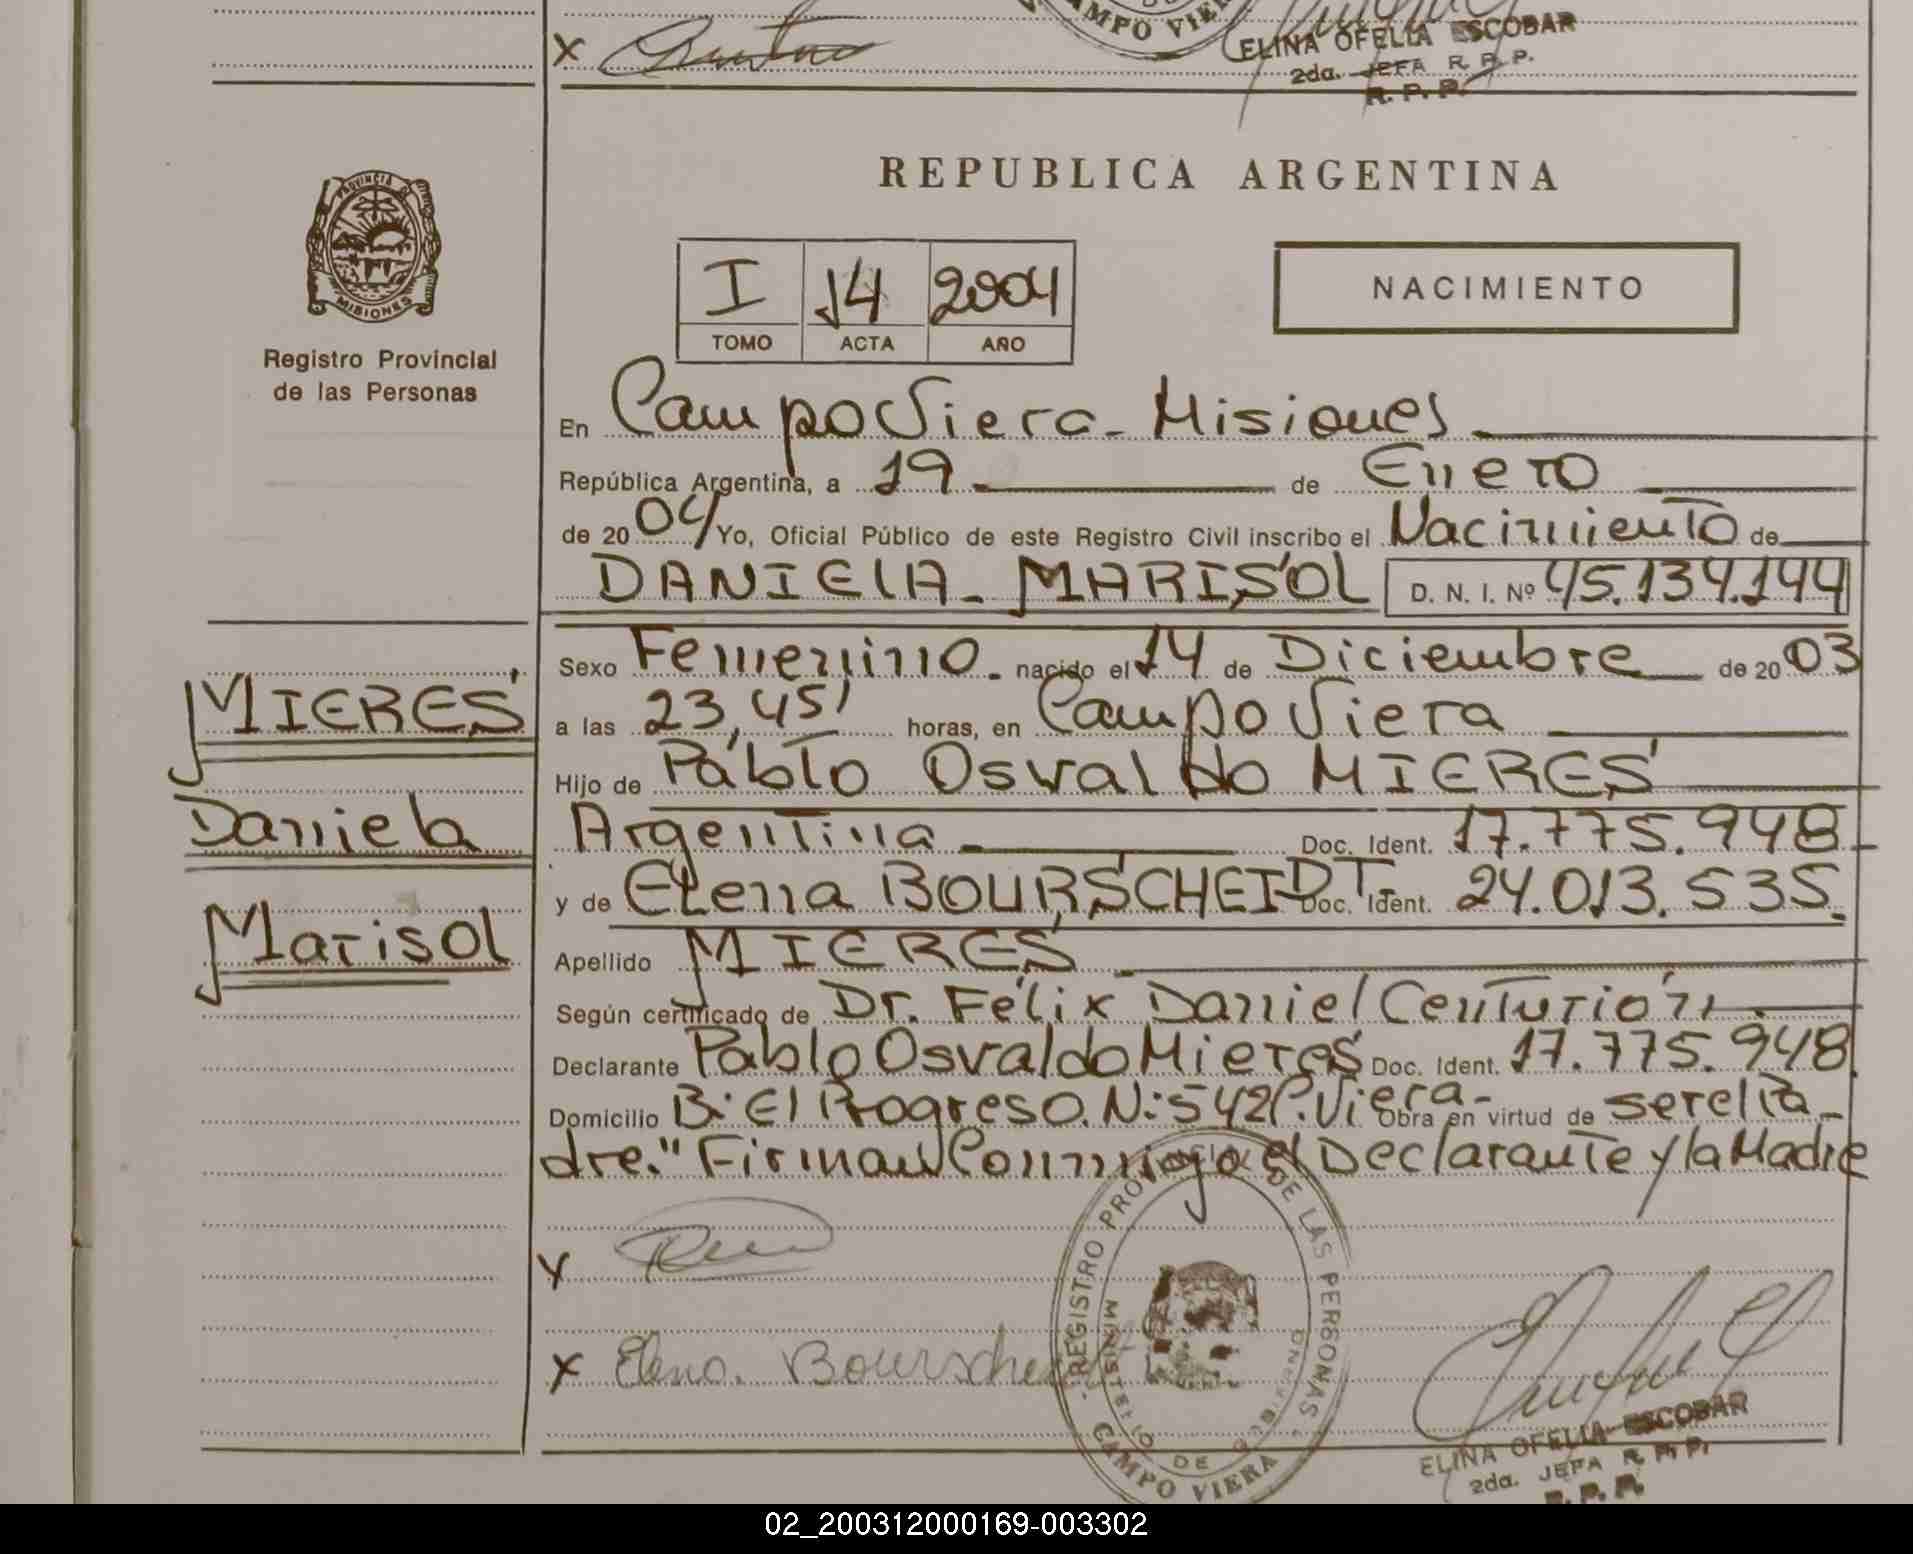 CAMPO VIER
ELINA OFELIA ESCOBAR
X
2da. JEFA R. P. P.
R. P. P.
PROVINCIA DE
MISIONES
Registro Provincial
de las Personas
REPUBLICA ARGENTINA
I 14 2004
TOMO ACTA AÑO
NACIMIENTO
En Campo Viera - Misiones
República Argentina, a 19 de Enero
de 2004 Yo, Oficial Público de este Registro Civil inscribo el Nacimiento de
DANIELA - MARISOL D. N. I. Nº 45.134.144
Sexo Femenino - nacido el 14 de Diciembre de 2003
MIERES
a las 23,45' horas, en Campo Viera
Hijo de Pablo Osvaldo MIERES
Daniela
Argentina Doc. Ident. 17.775.948
y de Elena BOURSCHEIDT - Doc. Ident. 24.013.535.
Marisol
Apellido MIERES
Según certificado de Dr. Félix Daniel Centurión
Declarante Pablo Osvaldo Mieres Doc. Ident. 17.775.948
Domicilio B: El Progreso. N: 542 C. Viera - Obra en virtud de ser el Pa-
dre." Firman Conmigo el Declarante y la Madre
X
X Elena. Bourscheid
REGISTRO PROVINCIAL DE LAS PERSONAS
MINISTERIO DE GOBIERNO
CAMPO VIERA
ELINA OFELIA ESCOBAR
2da. JEFA R. P. P.
R. P. P.
02_200312000169-003302